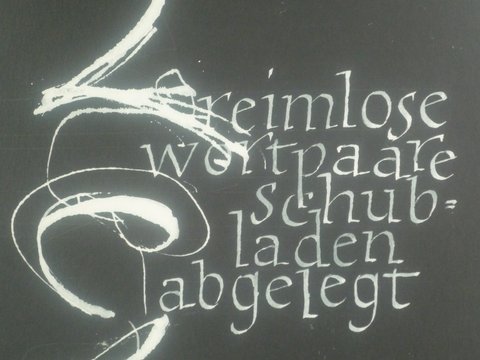 reimlose
wortpaare
schub=
laden
abgelegt